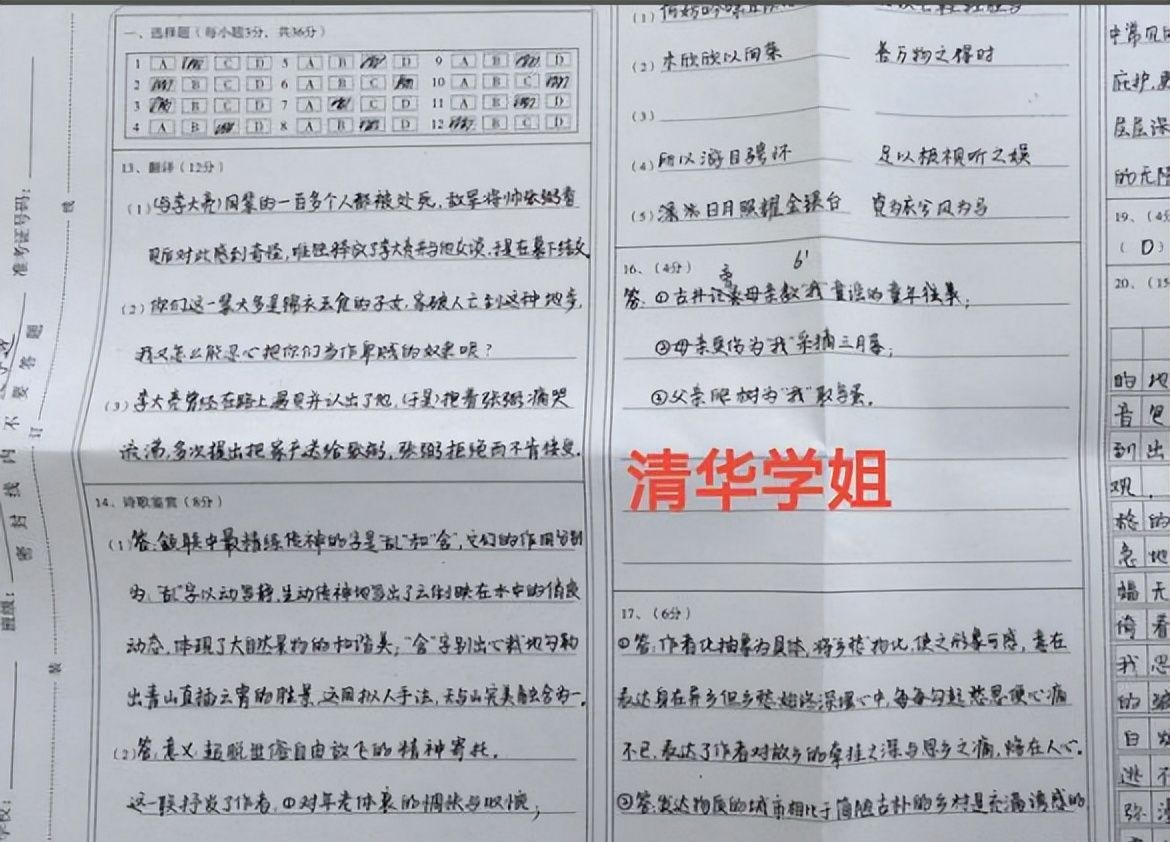 一、选择题（每小题3分，共36分）
1 A C D 5 A B D 9 A B D
2 B C D 6 A B C 10 A B C
3 B C D 7 A C D 11 A B D
4 A B D 8 A B D 12 B C D
13、翻译（12分）
(1)(与李大亮)同辈的一百多个人都被处死,敌军将帅张弼看
见后对此感到奇怪,唯独释放了李大亮并与他交谈,于是在幕下结交
(2)你们这一辈大多是锦衣玉食的子女,家破人亡到这种地步,
我又怎么能忍心把你们当作卑贱的奴婢呢？
(3)李大亮曾经在路上遇见并认出了他,(于是)抱着张弼痛哭
流涕,多次提出把家产送给张弼,张弼拒绝而不肯接受.
14、诗歌鉴赏（8分）
(1)答:颔联中最精练传神的字是"乱"和"含",它们的作用分别
为:"乱"字以动写静,生动传神地写出了云倒映在水中的
动态,体现了大自然景物的和谐美;"含"字别出心裁地勾勒
出青山直插云霄的胜景,运用拟人手法,天与山完美融合为一.
(2)答:意义:超脱世俗自由放飞的精神寄托.
这一联抒发了作者:①对年老体衰的惆怅与叹惋;
(1)
(2)木欣欣以向荣 善万物之得时
(3)
(4)所以游目骋怀 足以极视听之娱
(5) 日月照耀金银台 霓为衣兮风为马
16、（4分） 6'
答:①古井 母亲教"我" 童谣的童年往事;
②母亲 为"我"采摘三月 ;
③父亲爬树为"我"取鸟蛋.
清华学姐
17、（6分）
①答:作者化抽象为具体,将乡愁物化,使之形象可感,意在
表达身在异乡但乡愁始终深埋心中,每每勾起愁思便心痛
不已,表达了作者对故乡的牵挂之深与思乡之痛,
②答:发达物质的城市相比于简陋古朴的乡村是充满诱惑的
中常见
庇护,
层层深
的无限
19、（4分
（D）
20、（15
的地
音
到出
观.
的
急地
无
倚看
我思
的
白
逃不
弥漫
准考证号码：
班级：
学校：
密封线内不要答题
装
订
线